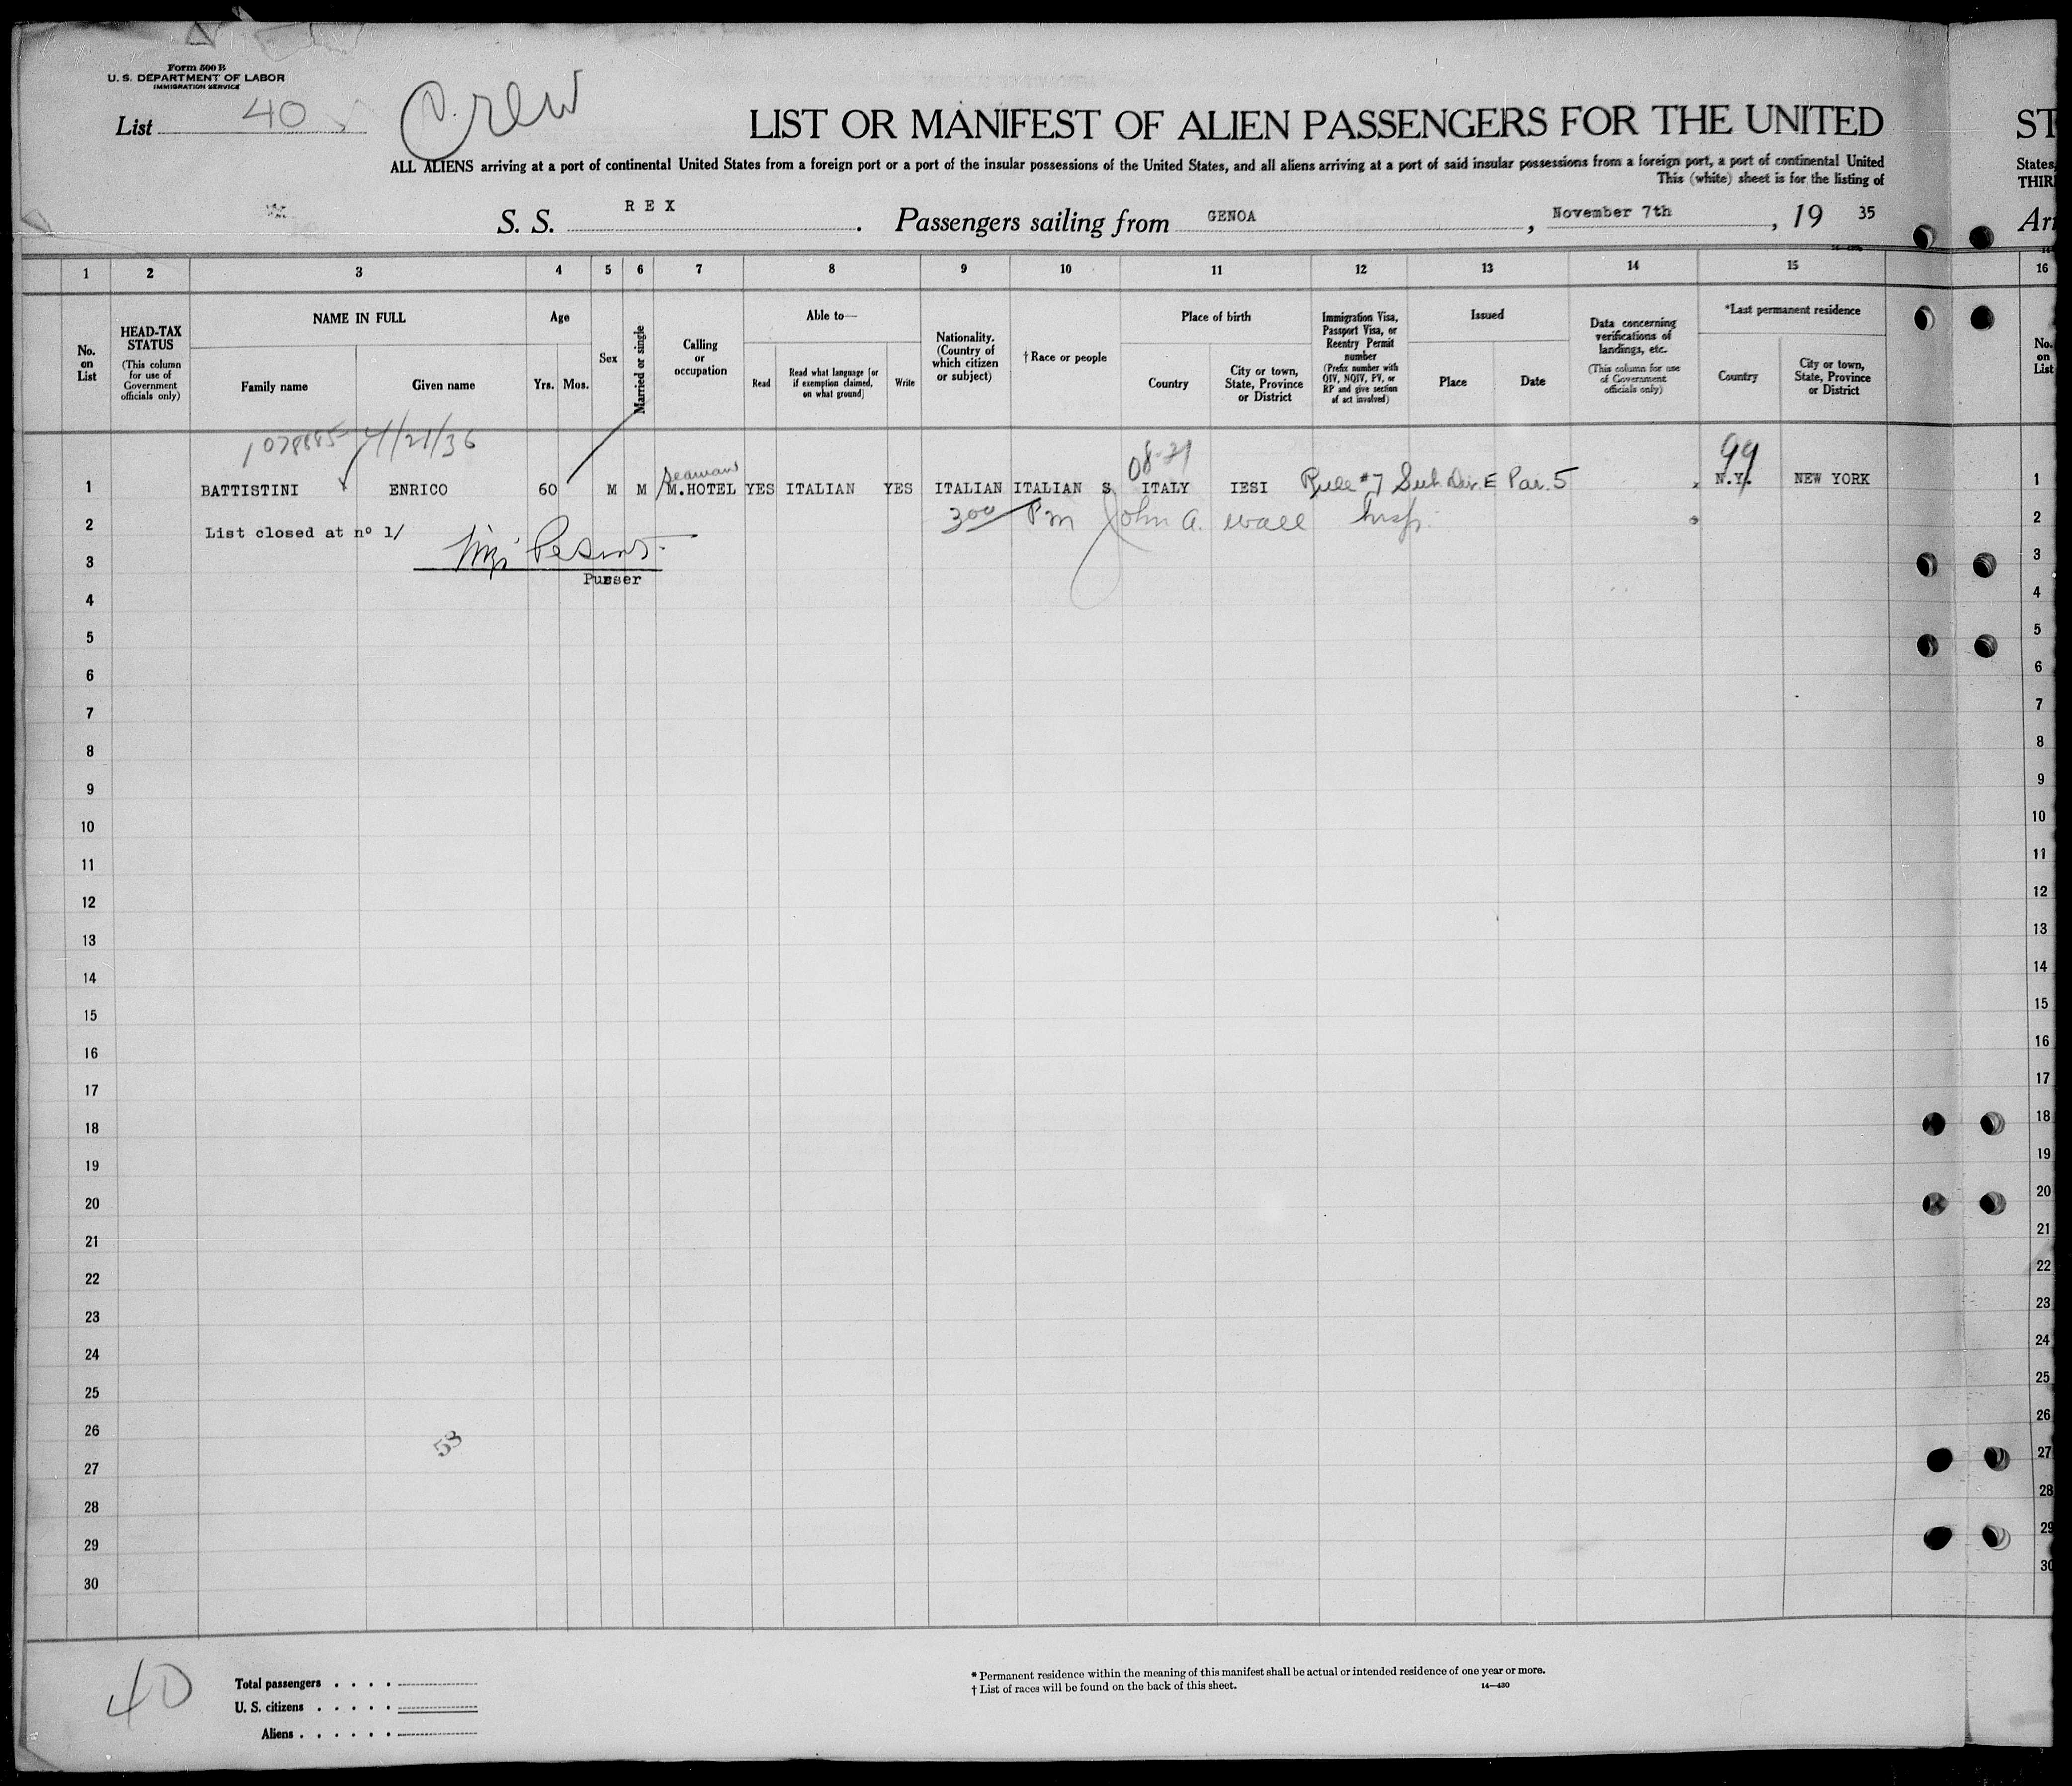 Form 500 B
U. S. DEPARTMENT OF LABOR
IMMIGRATION SERVICE
List 40
Crew
LIST OR MANIFEST OF ALIEN PASSENGERS FOR THE UNITED
ST
ALL ALIENS arriving at a port of continental United States from a foreign port or a port of the insular possessions of the United States, and all aliens arriving at a port of said insular possessions from a foreign port, a port of continental United
States,
This (white) sheet is for the listing of
THIR
S. S. REX. Passengers sailing from GENOA, November 7th, 19 35
Arr
1 2 3 4 5 6 7 8 9 10 11 12 13 14 15 16
No. on List
HEAD-TAX STATUS
(This column for use of Government officials only)
NAME IN FULL
Family name
Given name
Age
Yrs. Mos.
Sex
Married or single
Calling or occupation
Able to—
Read
Read what language [or if exemption claimed, on what ground]
Write
Nationality. (Country of which citizen or subject)
†Race or people
Place of birth
Country
City or town, State, Province or District
Immigration Visa, Passport Visa, or Reentry Permit number
(Prefix number with QIV, NQIV, PV, or RP and give section of act involved)
Issued
Place
Date
Data concerning verifications of landings, etc.
(This column for use of Government officials only)
*Last permanent residence
Country
City or town, State, Province or District
No. on List
1078885 4/21/36
08-21
99
seamans
1 BATTISTINI ENRICO 60 M M M.HOTEL YES ITALIAN YES ITALIAN ITALIAN S ITALY IESI Rule #7 Sub Div. E Par. 5 N.Y. NEW YORK 1
2 300 Pm John A. Wall Insp. 2
List closed at nº 1/
3 3
Purser
4 4
5 5
6 6
7 7
8 8
9 9
10 10
11 11
12 12
13 13
14 14
15 15
16 16
17 17
18 18
19 19
20 20
21 21
22 22
23 23
24 24
25 25
26 26
58
27 27
28 28
29 29
30 30
40
Total passengers . . . .
U. S. citizens . . . . .
Aliens . . . . . .
* Permanent residence within the meaning of this manifest shall be actual or intended residence of one year or more.
† List of races will be found on the back of this sheet.
14—430